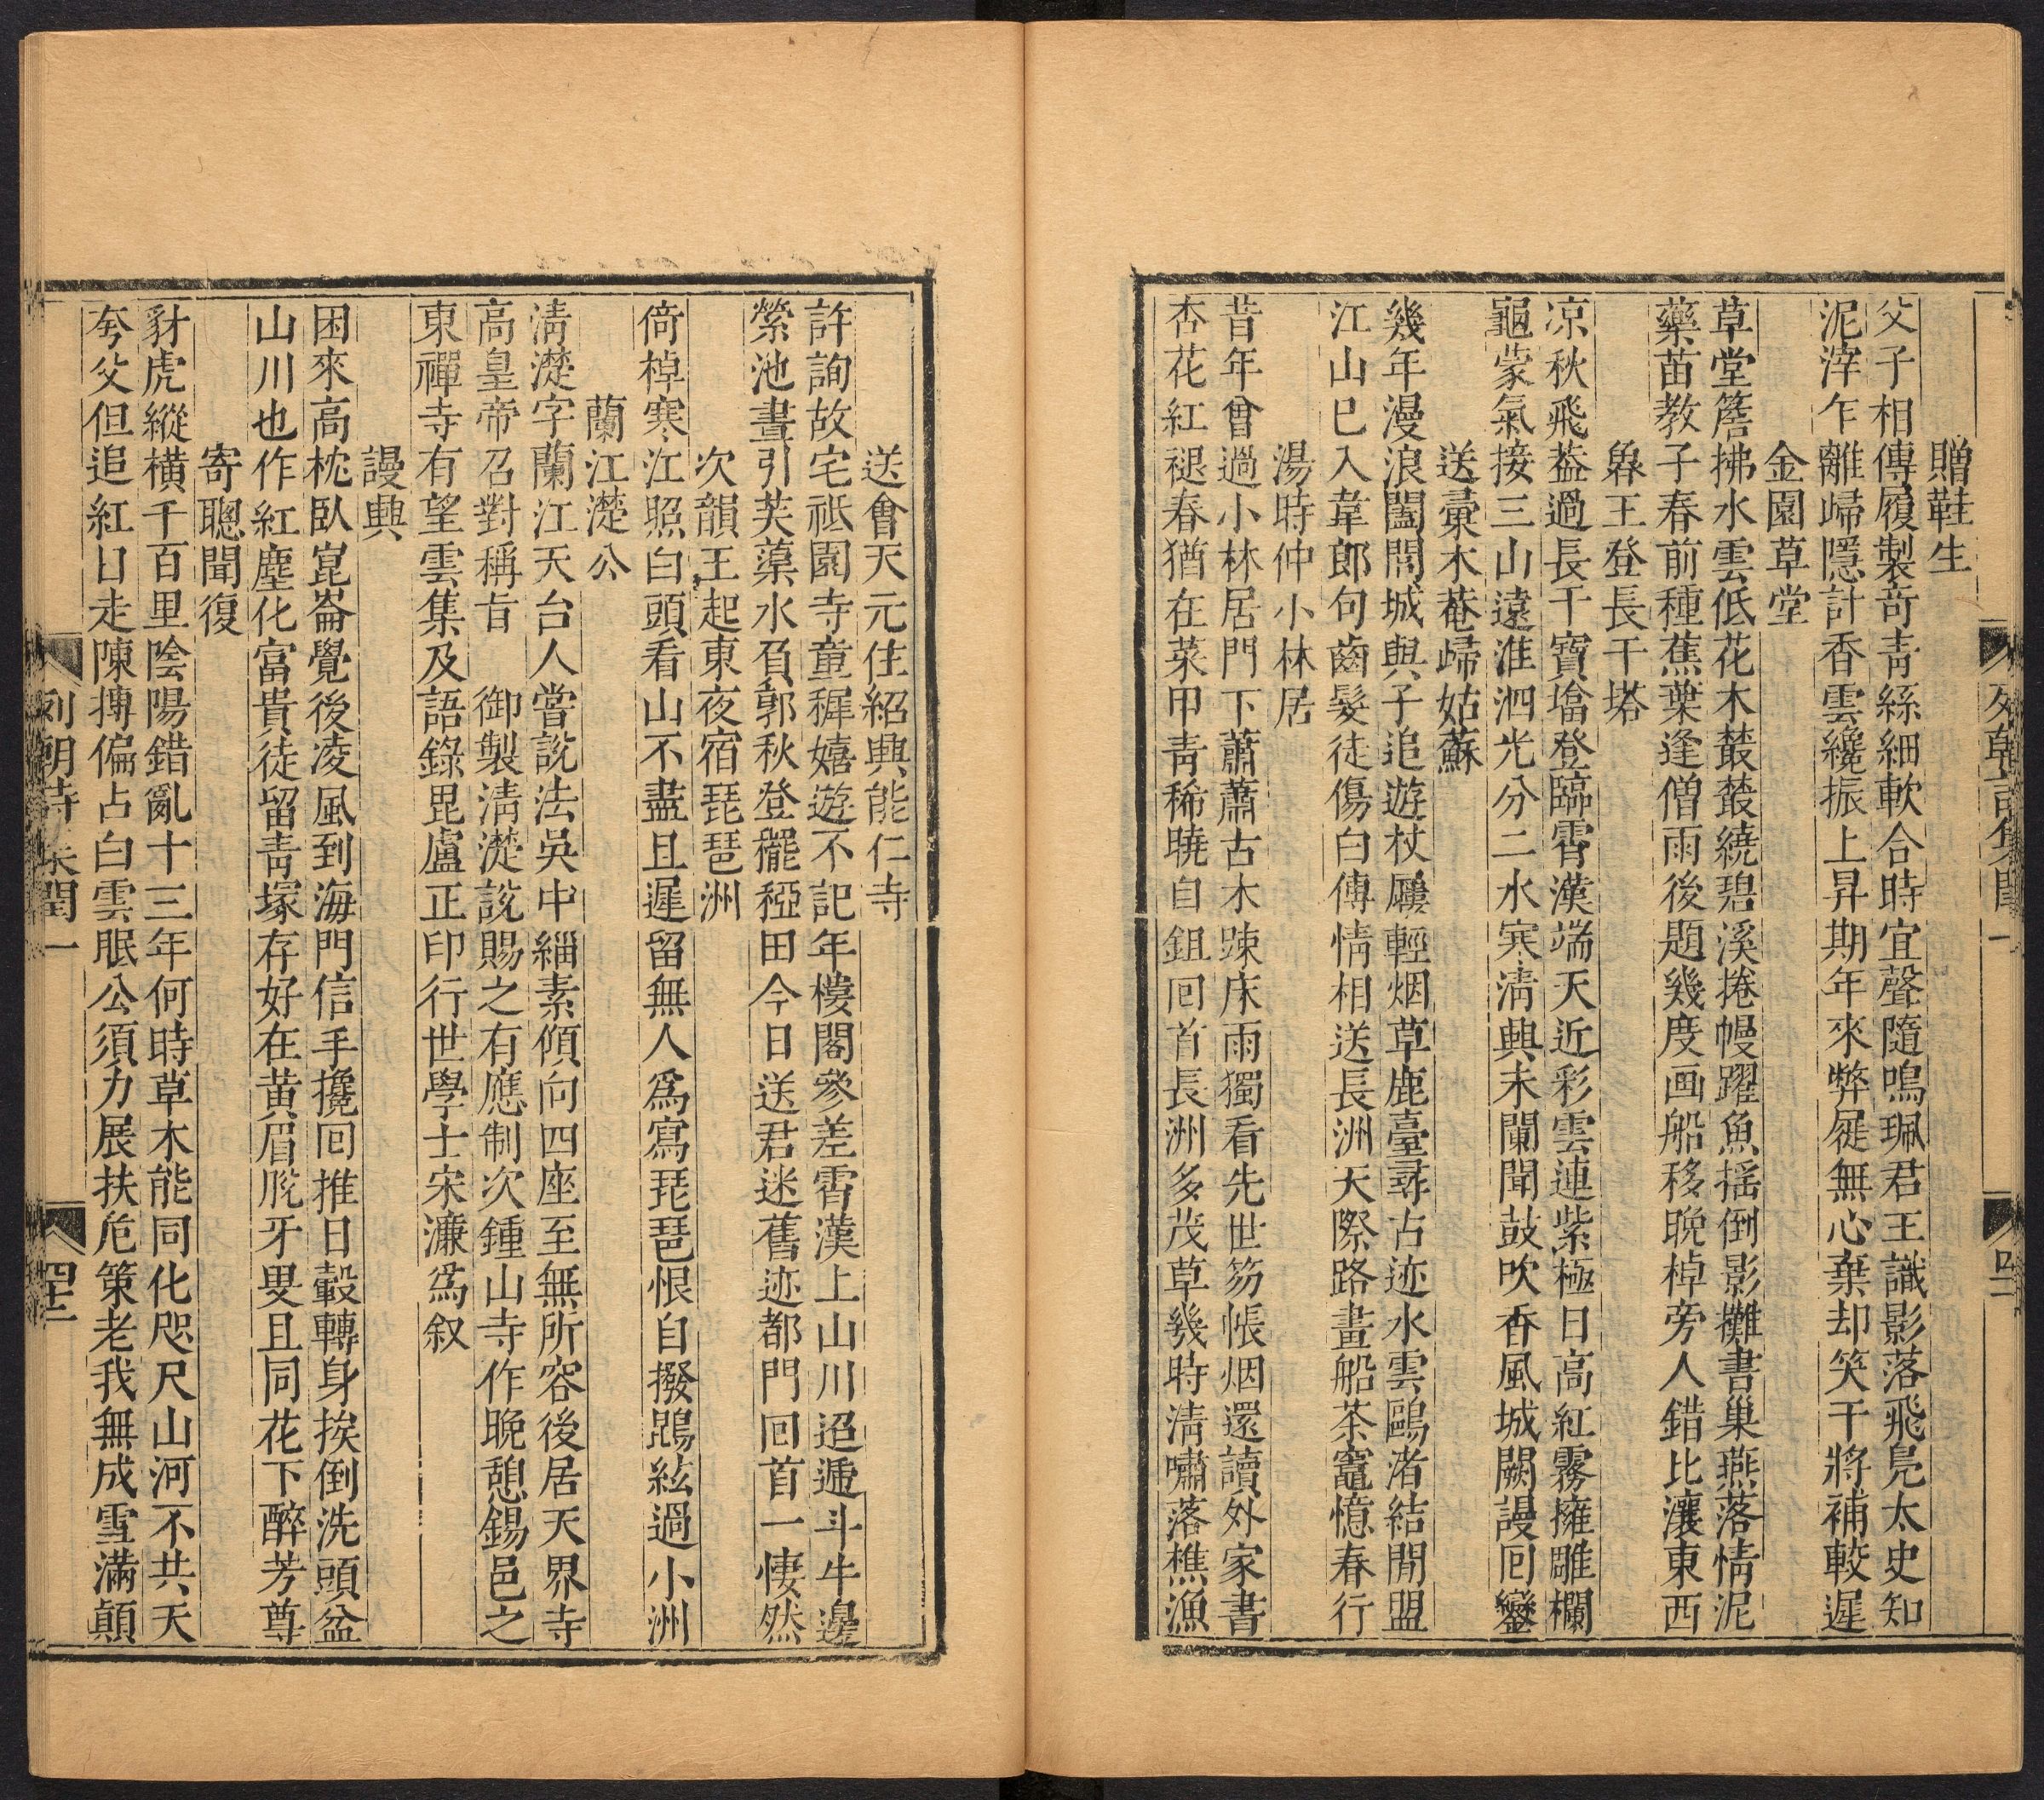 贈鞋生
父子相傳履製奇青絲細軟合時宜聲隨鳴珮君王識影落飛鳧太史知
泥滓乍離歸隱計香雲纔振上昇期年來弊屣無心棄却笑干將補較遲
金園草堂
草堂簷拂水雲低花木叢叢繞碧溪捲幔躍魚搖倒影攤書巢燕落情泥
藥苗教子春前種蕉葉逢僧雨後題幾度画船移晩棹旁人錯比瀼東西
㬪王登長干塔
凉秋飛葢過長干寶墖登臨霄漢端天近彩雲連紫極日高紅霧擁雕欄
龜蒙氣接三山遠淮泗光分二水寒清興未闌聞鼓吹香風城闕謾囘鑾
送㯱木菴歸姑蘇
幾年漫浪闔閭城與子追遊杖屨輕烟草鹿臺尋古迹水雲鷗渚結閒盟
江山巳入韋郎句齒髮徒傷白傳情相送長洲天際路畫船茶竈憶春行
湯時仲小林居
昔年曾過小林居門下蕭蕭古木踈床雨獨看先世笏帳烟還讀外家書
杏花紅褪春猶在菜甲靑稀曉自鉏囘首長洲多茂草幾時淸嘯落樵漁
列朝詩集閏一
四十二
送曾天元住紹興能仁寺
許詢故宅祗園寺童穉嬉遊不記年樓閣參差霄漢上山川迢遞斗牛邊
縈池晝引芙蕖水負郭秋登䆉稏田今日送君迷舊迹都門囘首一悽然
次韻王起東夜宿琵琶洲
倚棹寒江照白頭看山不盡且遲留無人爲寫琵琶恨自撥鵾絃過小洲
蘭江濋公
淸濋字蘭江天台人嘗說法吳中緇素傾向四座至無所容後居天界寺
高皇帝召對稱旨　御製淸濋說賜之有應制次鍾山寺作晩憩錫邑之
東禪寺有望雲集及語錄毘盧正印行世學士宋濂爲叙
謾興
困來高枕臥崑崙覺後凌風到海門信手攙囘推日轂轉身挨倒洗頭盆
山川也作紅塵化富貴徒留靑塚存好在黃眉脫牙叟且同花下醉芳尊
寄聰聞復
豺虎縱橫千百里陰陽錯亂十三年何時草木能同化咫尺山河不共天
夸父但追紅日走陳摶偏占白雲眠公須力展扶危策老我無成雪滿顚
列朝詩集閏一
四十二